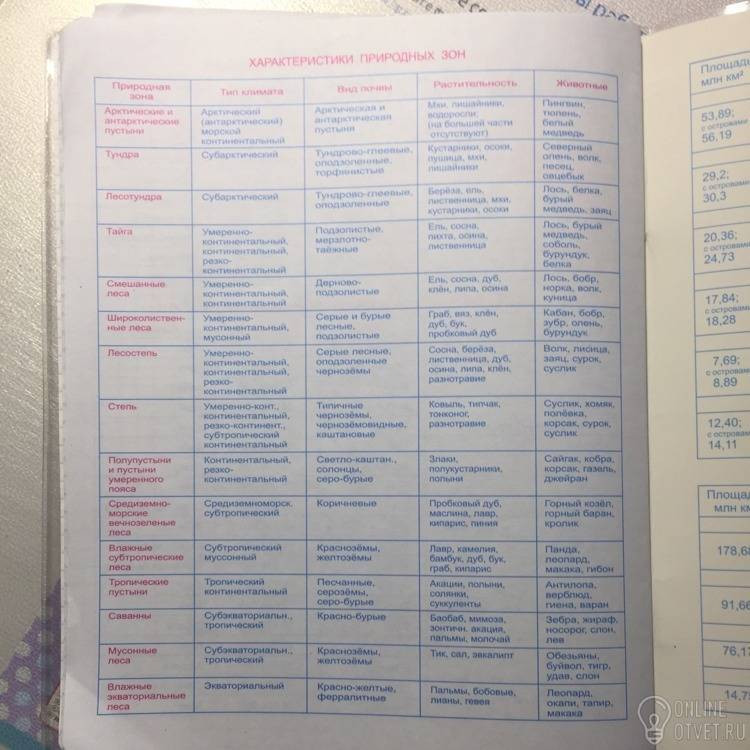 ХАРАКТЕРИСТИКИ ПРИРОДНЫХ ЗОН
Природная зона | Тип климата | Вид почвы | Растительность | Животные
Арктические и антарктические пустыни | Арктический (антарктический) морской континентальный | Арктическая и антарктическая пустыня | Мхи, лишайники, водоросли, (на большей части отсутствуют) | Пингвин, тюлень, белый медведь
Тундра | Субарктический | Тундрово-глеевые, оподзоленные, торфинистые | Кустарники, осоки, пушица, мхи, лишайники | Северный олень, волк, песец, овцебык
Лесотундра | Субарктический | Тундрово-глеевые, оподзоленные | Берёза, ель, лиственница, мхи, кустарники, осоки | Лось, белка, бурый медведь, заяц
Тайга | Умеренно-континентальный, континентальный, резко-континентальный | Подзолистые, мерзлотно-таёжные | Ель, сосна, пихта, осина, лиственница | Лось, бурый медведь, соболь, бурундук, белка
Смешанные леса | Умеренно-континентальный, континентальный | Дерново-подзолистые | Ель, сосна, дуб, клён, липа, осина | Лось, бобр, норка, волк, куница
Широколиственные леса | Умеренно-континентальный, муссонный | Серые и бурые лесные, подзолистые | Граб, вяз, клён, дуб, бук, пробковый дуб | Кабан, бобр, зубр, олень, бурундук
Лесостепь | Умеренно-континентальный, континентальный, резко-континентальный | Серые лесные, оподзоленные чернозёмы | Сосна, берёза, лиственница, дуб, осина, липа, клён, разнотравие | Волк, лисица, заяц, сурок, суслик
Степь | Умеренно-конт., континентальный, резко-континент., субтропический континентальный | Типичные чернозёмы, чернозёмовидные, каштановые | Ковыль, типчак, тонконог, разнотравие | Суслик, хомяк, полёвка, корсак, сурок, суслик
Полупустыни и пустыни умеренного пояса | Континентальный, резко-континентальный | Светло-каштан., солонцы, серо-бурые | Злаки, полукустарники, полыни | Сайгак, кобра, корсак, газель, джейран
Средиземноморские вечнозеленые леса | Средиземноморск. субтропический | Коричневые | Пробковый дуб, маслина, лавр, кипарис, пиния | Горный козёл, горный баран, кролик
Влажные субтропические леса | Субтропический муссонный | Краснозёмы, желтозёмы | Лавр, камелия, бамбук, дуб, бук, граб, кипарис | Панда, леопард, макака, гибон
Тропические пустыни | Тропический континентальный | Песчанные, серозёмы, серо-бурые | Акации, полыни, солянки, суккуленты | Антилопа, верблюд, гиена, варан
Саванны | Субэкваториальн., тропический | Красно-бурые | Баобаб, мимоза, зонтичн. акация, пальмы, молочай | Зебра, жираф, носорог, слон, лев
Мусонные леса | Субэкваториальн., тропический | Краснозёмы, желтозёмы | Тик, сал, эвкалипт | Обезьяны, буйвол, тигр, удав, слон
Влажные экваториальные леса | Экваториальный | Красно-желтые, ферралитные | Пальмы, бобовые, лианы, гевея | Леопард, окапи, тапир, макака
млн км²
53,89;
с островами
56,19
29,2;
с островами
30,3
20,36;
с островами
24,73
17,84;
с островами
18,28
7,69;
с островами
8,89
12,40;
с островами
14,11
91,66
ONLINE
OTVET.RU